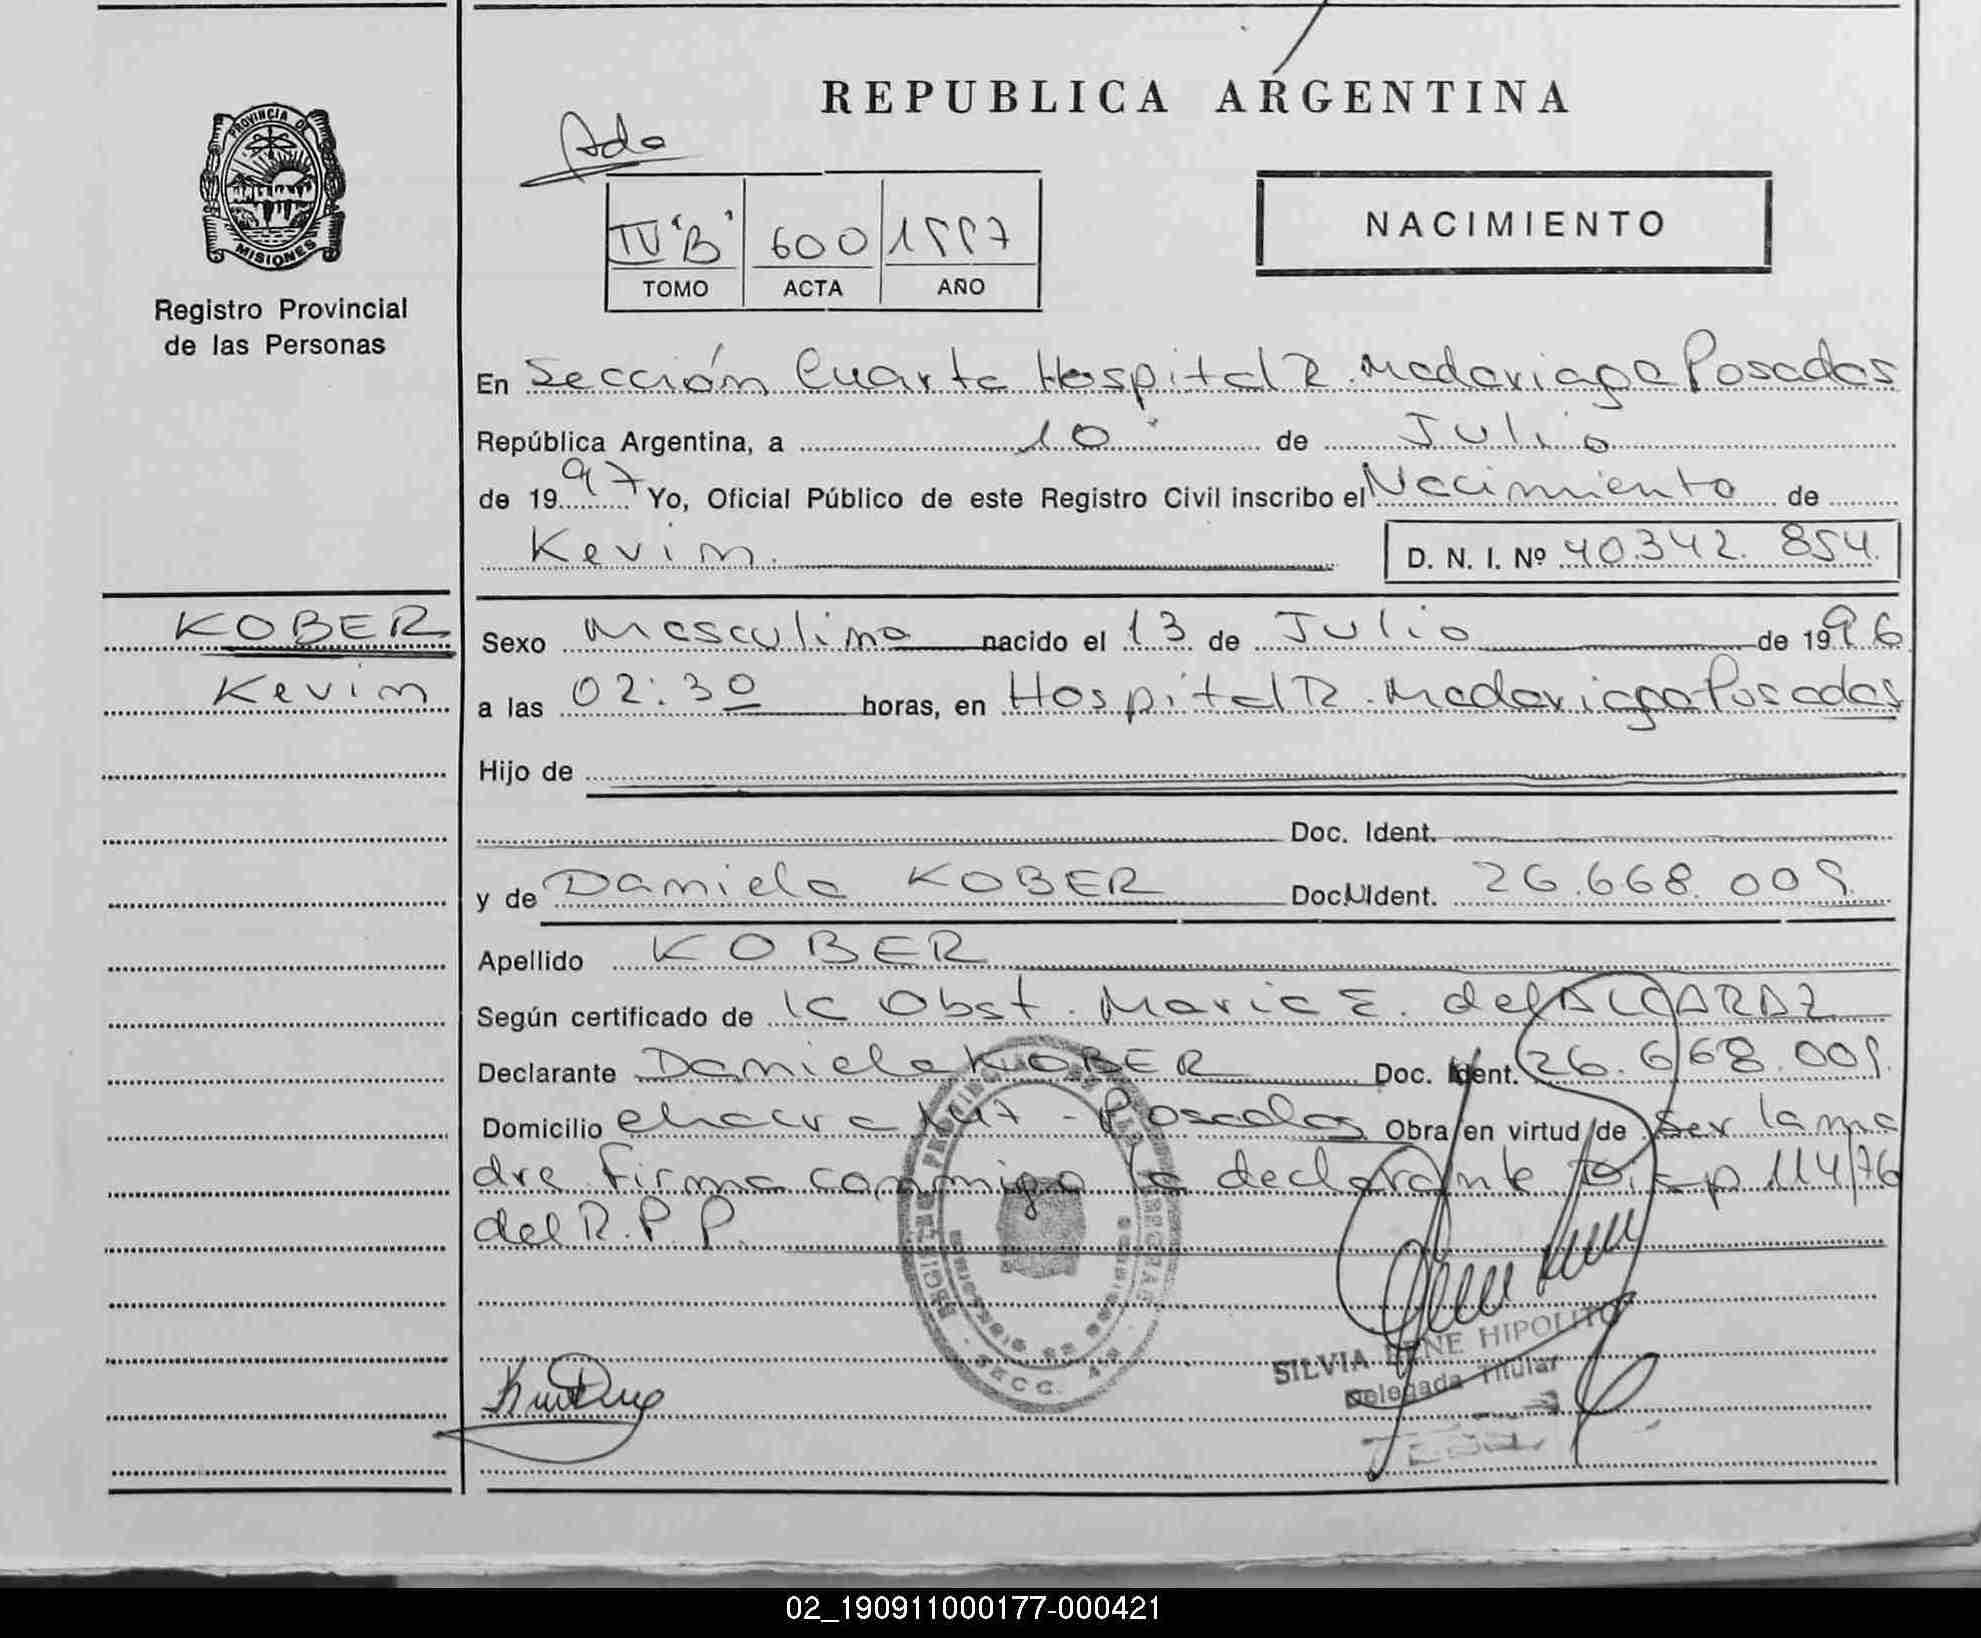 REPUBLICA ARGENTINA
PROVINCIA DE
MISIONES
Registro Provincial
de las Personas
Ado
IV "B" 600 1997
TOMO ACTA AÑO
NACIMIENTO
En Sección Cuarta Hospital R. Madariaga Posadas
República Argentina, a 10 de Julio
de 1997 Yo, Oficial Público de este Registro Civil inscribo el Nacimiento de
Kevin D. N. I. Nº 40.342.854.
KOBER
Kevin
Sexo Masculino nacido el 13 de Julio de 1996
a las 02:30 horas, en Hospital R. Madariaga Posadas
Hijo de
Doc. Ident.
y de Daniela KOBER Doc. Ident. 26.668.009.
Apellido KOBER
Según certificado de la Obst. Maria E. del ALCARAZ
Declarante Daniela KOBER Doc. Ident. 26.668.009.
Domicilio chacra - Posadas Obra en virtud de ser la ma
dre firma conmigo la declarante Disp 114/76
del R.P.P.
SECC. 4ta
SILVIA IRENE HIPOLITO
Delegada Titular
02_190911000177-000421